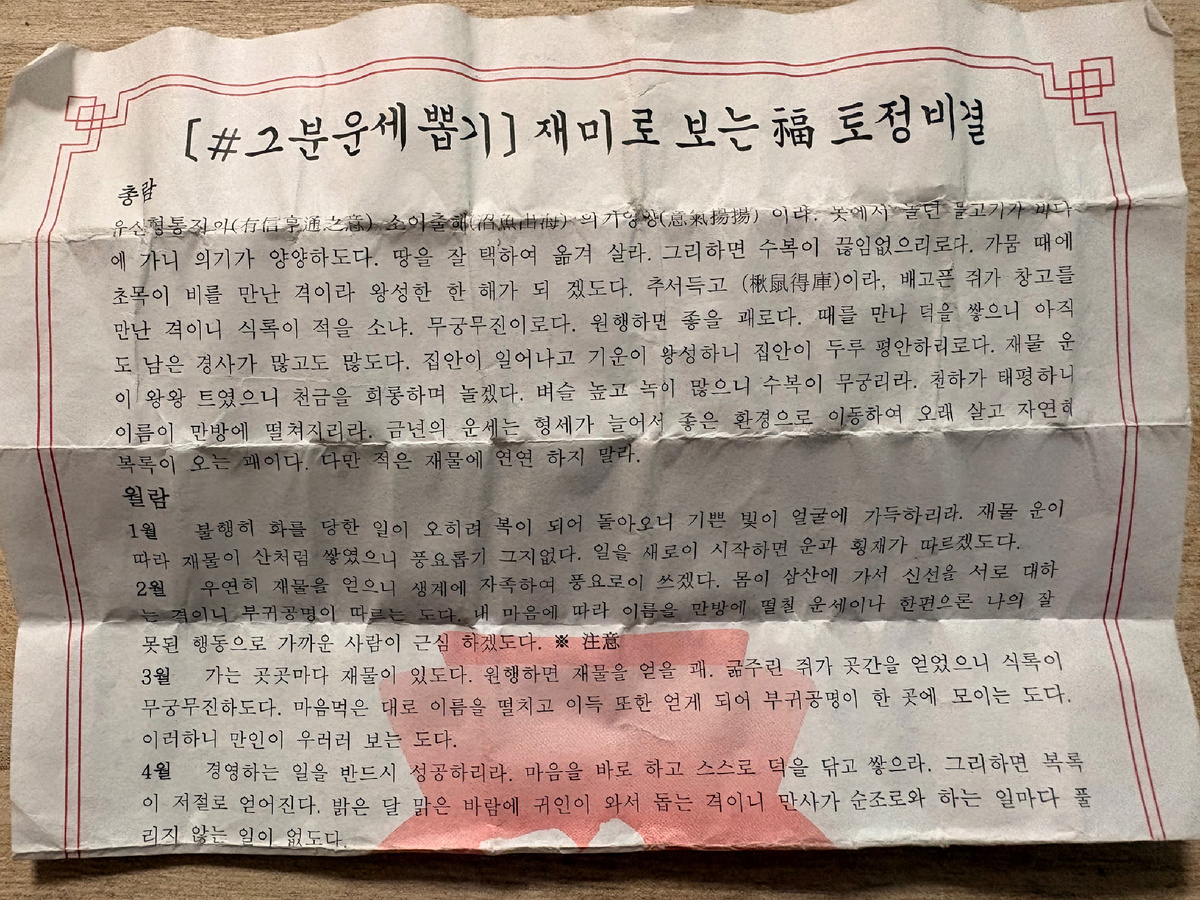 [#그분운세뽑기] 재미로 보는 福 토정비결
총람
유신형통지의(有信亨通之意) 소어출해(沼魚出海) 의기양양(意氣揚揚) 이라. 못에서 놀던 물고기가 바다
에 가니 의기가 양양하도다. 땅을 잘 택하여 옮겨 살라. 그리하면 수복이 끊임없으리로다. 가뭄 때에
초목이 비를 만난 격이라 왕성한 한 해가 되 겠도다. 추서득고 (楸鼠得庫)이라, 배고픈 쥐가 창고를
만난 격이니 식록이 적을 소냐. 무궁무진이로다. 원행하면 좋을 괘로다. 때를 만나 덕을 쌓으니 아직
도 남은 경사가 많고도 많도다. 집안이 일어나고 기운이 왕성하니 집안이 두루 평안하리로다. 재물 운
이 왕왕 트였으니 천금을 희롱하며 놀겠다. 벼슬 높고 녹이 많으니 수복이 무궁리라. 천하가 태평하니
이름이 만방에 떨쳐지리라. 금년의 운세는 형세가 늘어서 좋은 환경으로 이동하여 오래 살고 자연히
복록이 오는 괘이다. 다만 적은 재물에 연연 하지 말라.
월람
1월 불행히 화를 당한 일이 오히려 복이 되어 돌아오니 기쁜 빛이 얼굴에 가득하리라. 재물 운이
따라 재물이 산처럼 쌓였으니 풍요롭기 그지없다. 일을 새로이 시작하면 운과 횡재가 따르겠도다.
2월 우연히 재물을 얻으니 생계에 자족하여 풍요로이 쓰겠다. 몸이 삼산에 가서 신선을 서로 대하
는 격이니 부귀공명이 따르는 도다. 내 마음에 따라 이름을 만방에 떨칠 운세이나 한편으론 나의 잘
못된 행동으로 가까운 사람이 근심 하겠도다. ※ 注意
3월 가는 곳곳마다 재물이 있도다. 원행하면 재물을 얻을 괘. 굶주린 쥐가 곳간을 얻었으니 식록이
무궁무진하도다. 마음먹은 대로 이름을 떨치고 이득 또한 얻게 되어 부귀공명이 한 곳에 모이는 도다.
이러하니 만인이 우러러 보는 도다.
4월 경영하는 일을 반드시 성공하리라. 마음을 바로 하고 스스로 덕을 닦고 쌓으라. 그리하면 복록
이 저절로 얻어진다. 밝은 달 맑은 바람에 귀인이 와서 돕는 격이니 만사가 순조로와 하는 일마다 풀
리지 않는 일이 없도다.